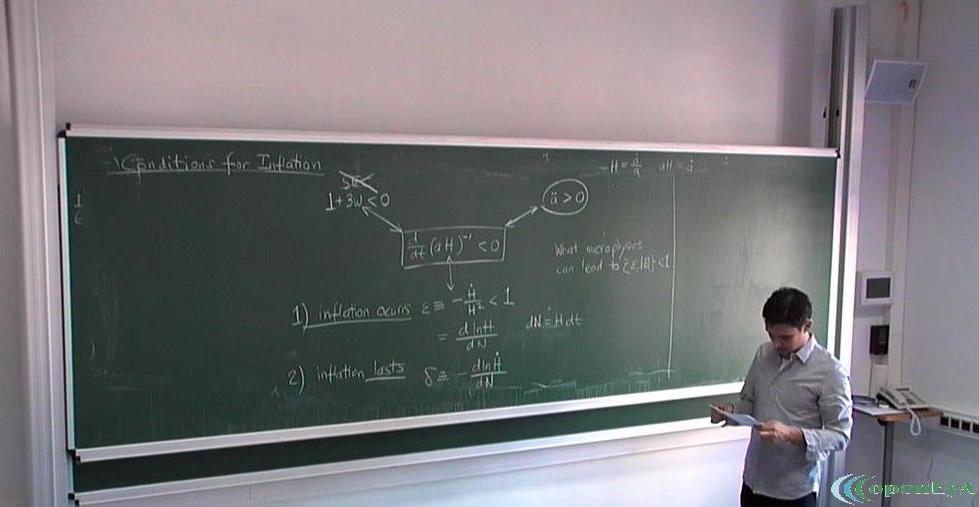 Conditions for Inflation
H = ȧ/a aH = ȧ
SEC
1+3w<0
ä > 0
d/dt (aH)⁻¹ < 0
What microphysics
can lead to {ε,|δ|}<1
1) inflation occurs ε ≡ -Ḣ/H² < 1
= d ln H/dN dN = H dt
2) inflation lasts δ ≡ - d ln Ḣ/dN
openEyA